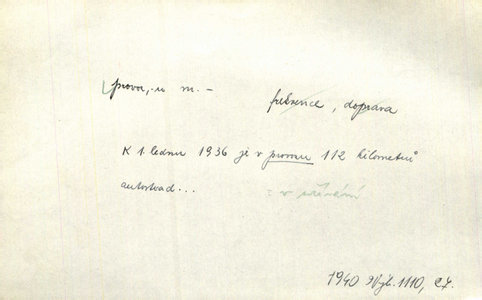 provoz, -u m. -
frekvence, doprava
K 1. lednu 1936 je v provozu 112 kilometrů
autostrad...
= v užívání
1940 Výb. 1110, 27.